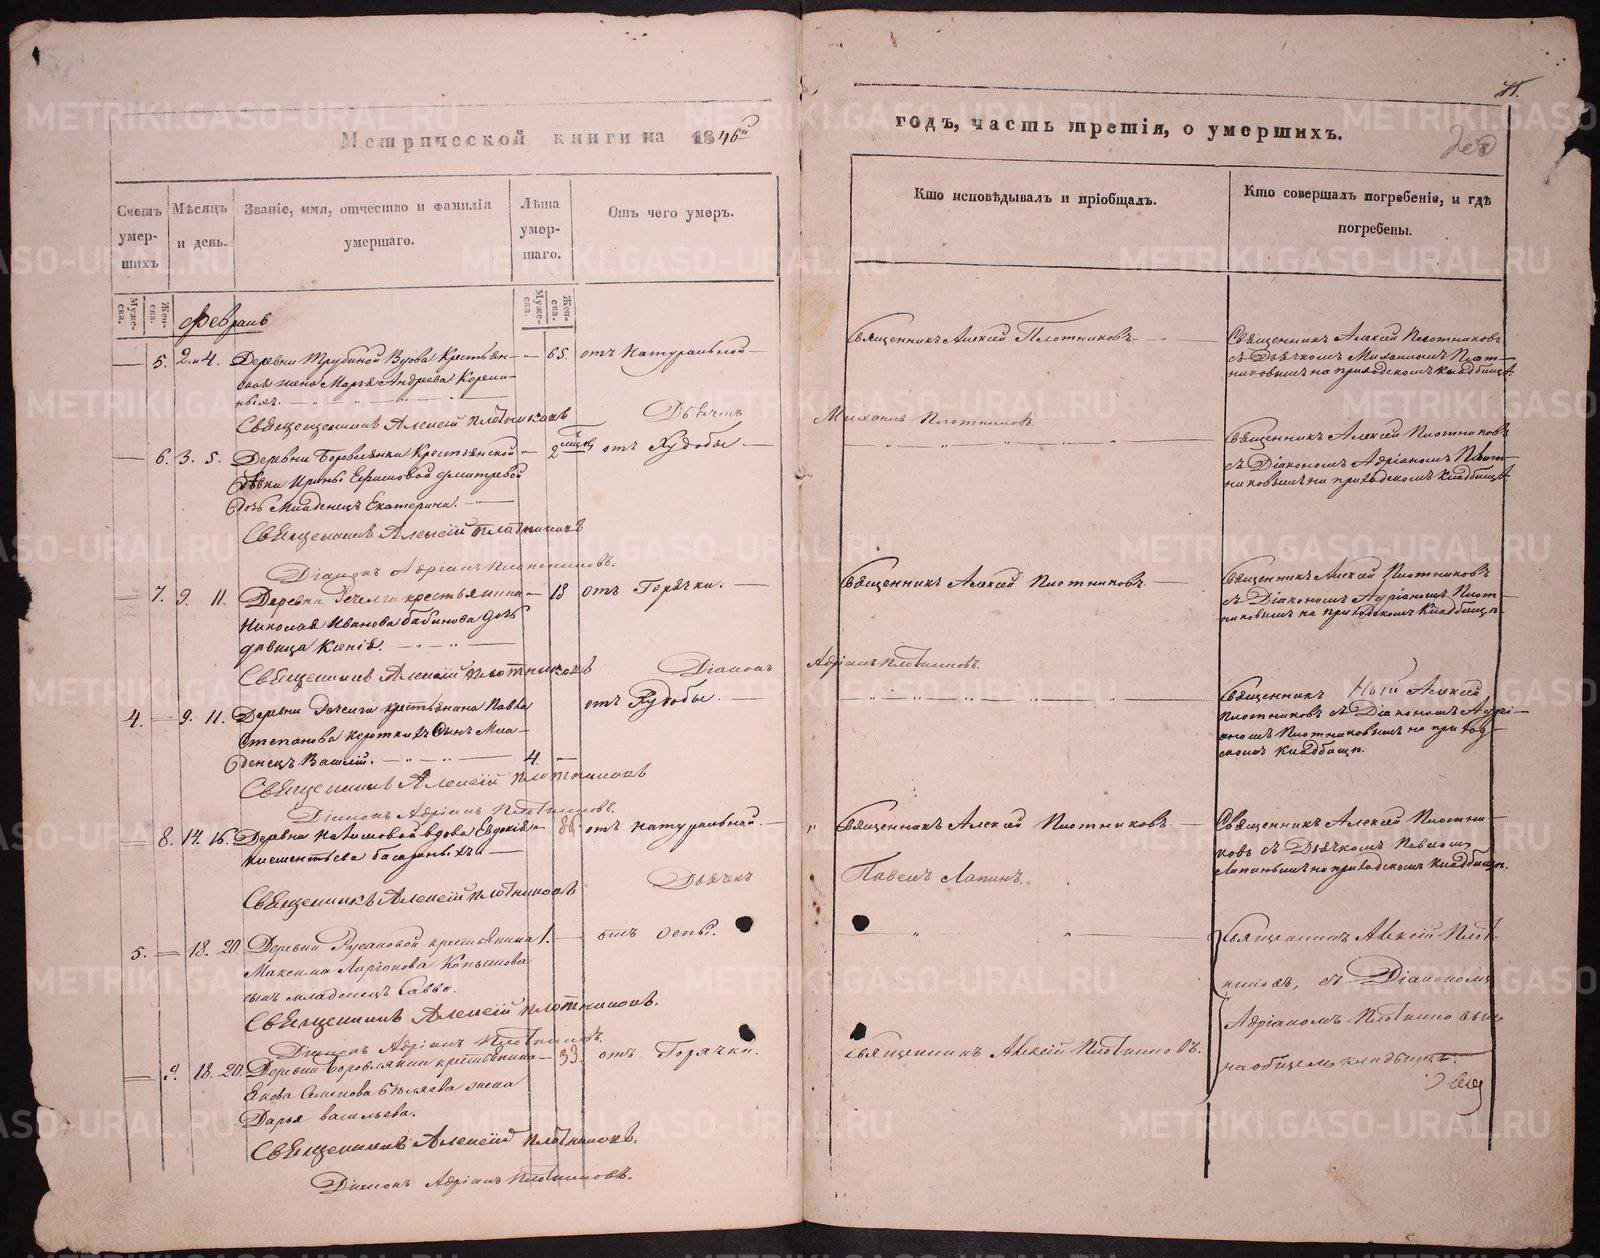 Метрической книги на 1846й
годъ, часть третія, о умершихъ.
Счетъ умер-
шихъ
Мѣсяцъ
и день.
Званіе, имя, отчество и фамилія
умершаго.
Лѣта
умер-
шаго.
Отъ чего умеръ.
Кто исповѣдывалъ и пріобщалъ.
Кто совершалъ погребеніе, и гдѣ
погребены.
Муже-
ска.
Жен-
ска.
Муже-
ска.
Жен-
ска.
Февраль
— 5. 2. и 4. Деревни Трубиной Вдова Крестьян- — 65. отъ натуральной —
жена Марѳа Андреева
Священникъ Алексій Плотниковъ Дьячекъ Михаилъ Плотниковъ
Священникъ Алексей Плотниковъ
Священникъ Алексей Плотниковъ
съ Дьячкомъ Михаиломъ Плот-
никовымъ на приходскомъ кладбищѣ.
— 6. 3. 5. Деревни Боровлянка Крестьянской — 2 отъ Худобы —
Дѣвки Ирины Ефимовой
Дочь Младенецъ Екатерина.
Священникъ Алексій Плотниковъ
Діаконъ Адріанъ Плотниковъ.
Священникъ Алексей Плотниковъ
съ Діакономъ Адріаномъ Плот-
никовымъ на приходскомъ кладбищѣ
— 7. 9. 11. Деревни крестьянина — 18 отъ Горячки. —
Николая Иванова Бабинова дочь
дѣвица Ксенія.
Священникъ Алексій Плотниковъ Діаконъ Адріанъ Плотниковъ.
Священникъ Алексей Плотниковъ. —
Священникъ Алексей Плотниковъ
съ Діакономъ Адріаномъ Плот-
никовымъ на приходскомъ кладбищѣ
4. — 9. 11. Деревни крестьянина Павла отъ Худобы. —
Степанова Короткихъ Сынъ Мла-
денецъ Василій. — 4. —
Священникъ Алексій Плотниковъ
Діаконъ Адріанъ Плотниковъ.
Священникъ Алексей
Плотниковъ съ Діакономъ Адрі-
аномъ Плотниковымъ на приход-
скомъ кладбищѣ.
— 8. 14. 16. Деревни вдова Евдокія — 86. отъ натуральной. —
Клементьева
Священникъ Алексій Плотниковъ Дьячекъ Павелъ Лапинъ.
Священникъ Алексей Плотниковъ. —
Священникъ Алексей Плотни-
ковъ съ Дьячкомъ Павломъ
Лапинымъ на приходскомъ кладбищѣ.
5. — 18. 20. Деревни Русаковой крестьянина 1. — отъ оспы.
Максима Ларіонова
сынъ младенецъ Савва.
Священникъ Алексій Плотниковъ.
Діаконъ Адріанъ Плотниковъ.
Священникъ Алексій Плот-
никовъ, съ Діакономъ
Адріаномъ Плотниковымъ
на общемъ кладбищѣ.
— 9. 18. 20. Деревни Боровлянки крестьянина — 39. отъ Горячки.
Якова Семенова Бѣляева жена
Дарья Васильева.
Священникъ Алексій Плотниковъ.
Діаконъ Адріанъ Плотниковъ.
Священникъ Алексій Плотниковъ.
METRIKI.GASO-URAL.RU